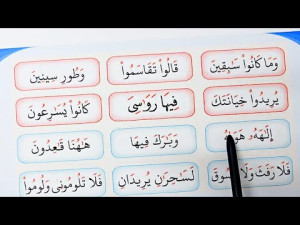 وَمَا كَانُوا۟ سَٰبِقِينَ قَالُوا۟ تَقَاسَمُوا۟ وَطُورِ سِينِينَ
يُرِيدُوا۟ خِيَانَتَكَ فِيهَا رَوَٰسِىَ كَانُوا۟ يُسَٰرِعُونَ
إِلَٰهَهُۥ هَوَىٰهُ وَبَٰرَكَ فِيهَا هَٰهُنَا قَٰعِدُونَ
فَلَا رَفَثَ وَلَا فُسُوقَ لَسَٰحِرَٰنِ يُرِيدَانِ فَلَا تَلُومُونِى وَلُومُوا۟